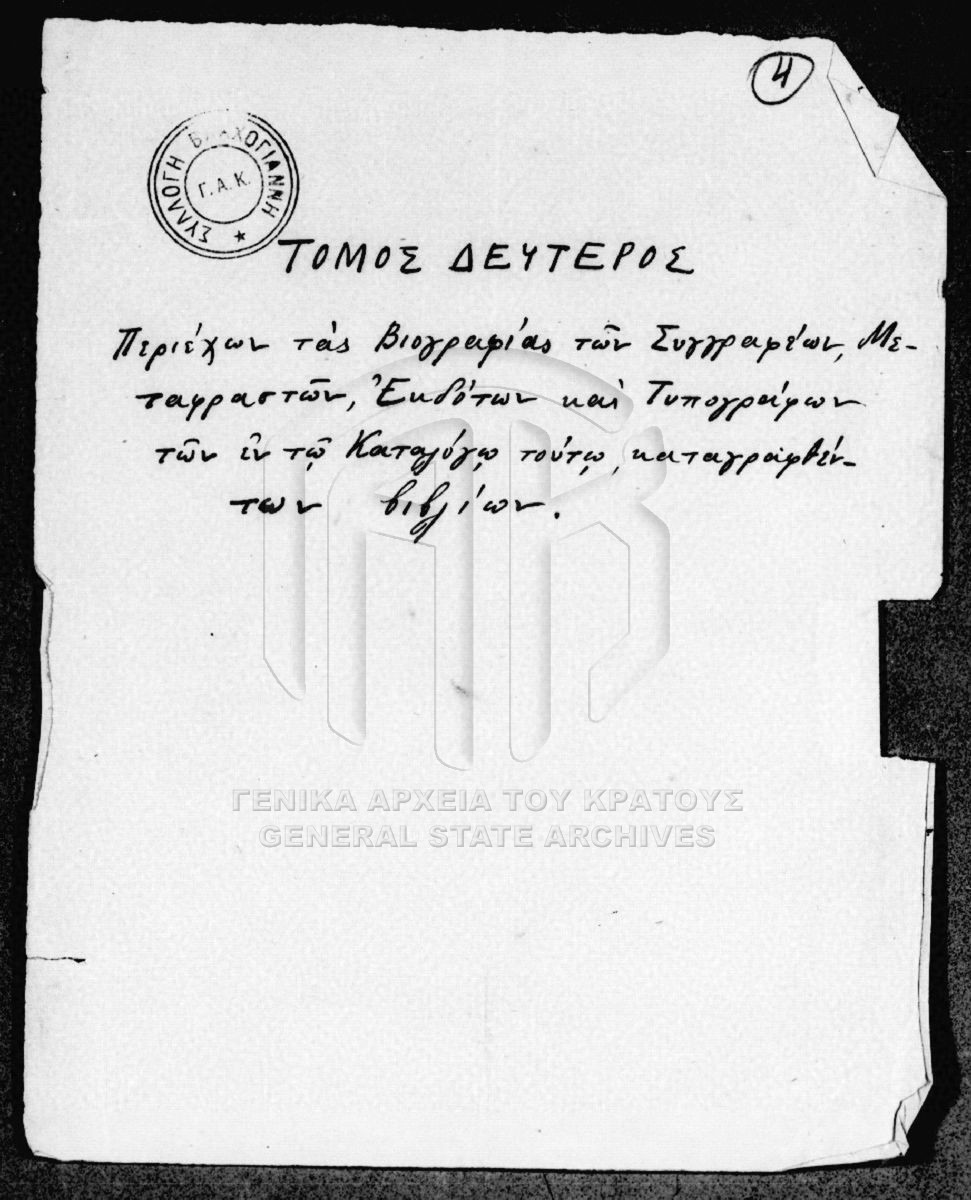 4
ΣΥΛΛΟΓΗ ΒΛΑΧΟΓΙΑΝΝΗ
Γ.Α.Κ.
ΤΟΜΟΣ ΔΕΥΤΕΡΟΣ
Περιέχων τὰς Βιογραφίας τῶν Συγγραφέων, Με-
ταφραστῶν, Ἐκδότων καὶ Τυπογράφων
τῶν ἐν τῷ Καταλόγῳ τούτῳ καταγραφθέν-
των βιβλίων.
ΓΕΝΙΚΑ ΑΡΧΕΙΑ ΤΟΥ ΚΡΑΤΟΥΣ
GENERAL STATE ARCHIVES